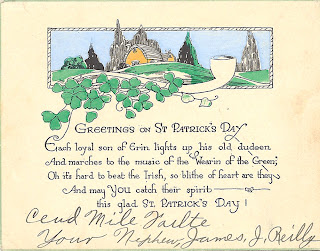 GREETINGS ON ST PATRICK'S DAY
Each loyal son of Erin lights up his old dudeen
And marches to the music of the "Wearin of the Green;"
Oh it's hard to beat the Irish, so blithe of heart are they
And may YOU catch their spirit
this glad ST. PATRICK'S DAY!
Cead Mile Failte
Your Nephew, James, J, Reilly